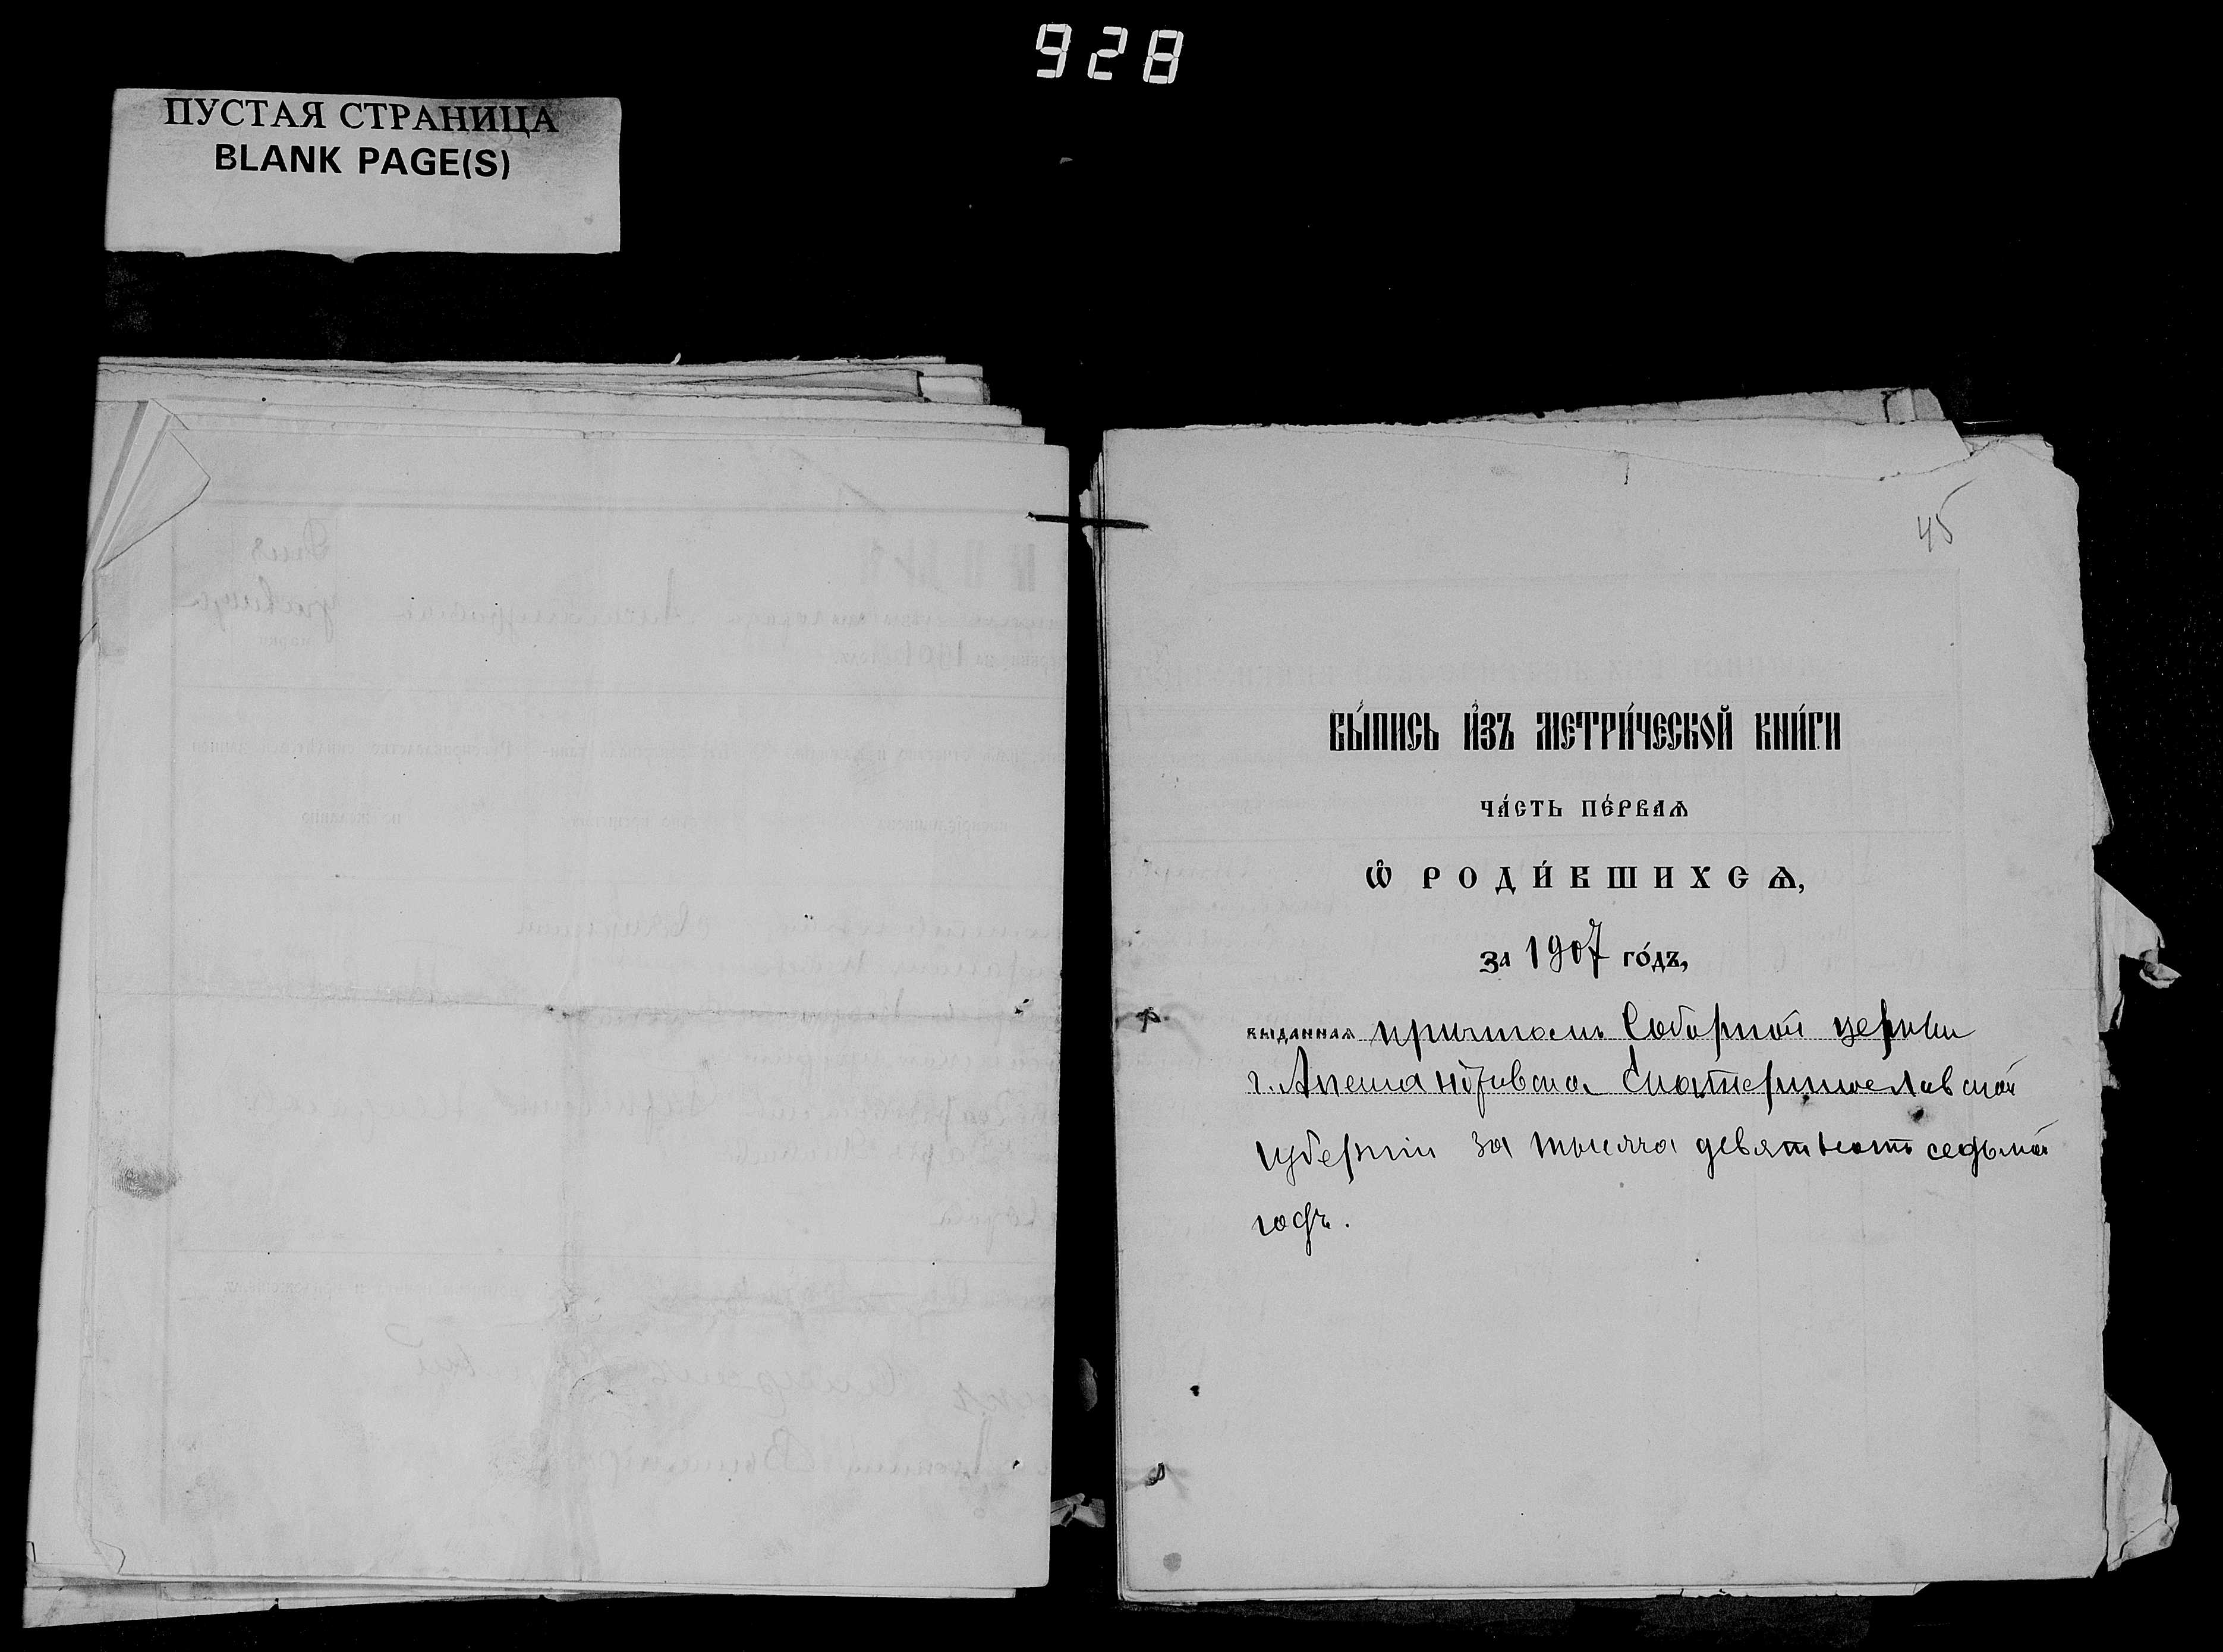 928
ПУСТАЯ СТРАНИЦА
BLANK PAGE(S)
45
ВЫ́ПИСЬ И҆ЗЪ МЕТРИ́ЧЕСКОЙ КНИ́ГИ
ЧА́СТЬ ПЕ́РВАѦ
Ѽ РОДИ́ВШИХСѦ,
за 1907 го́дъ,
выданная причтомъ Соборной церкви
г. Александровска Екатеринославской
губерніи за тысяча девятьсотъ седьмой
годъ.